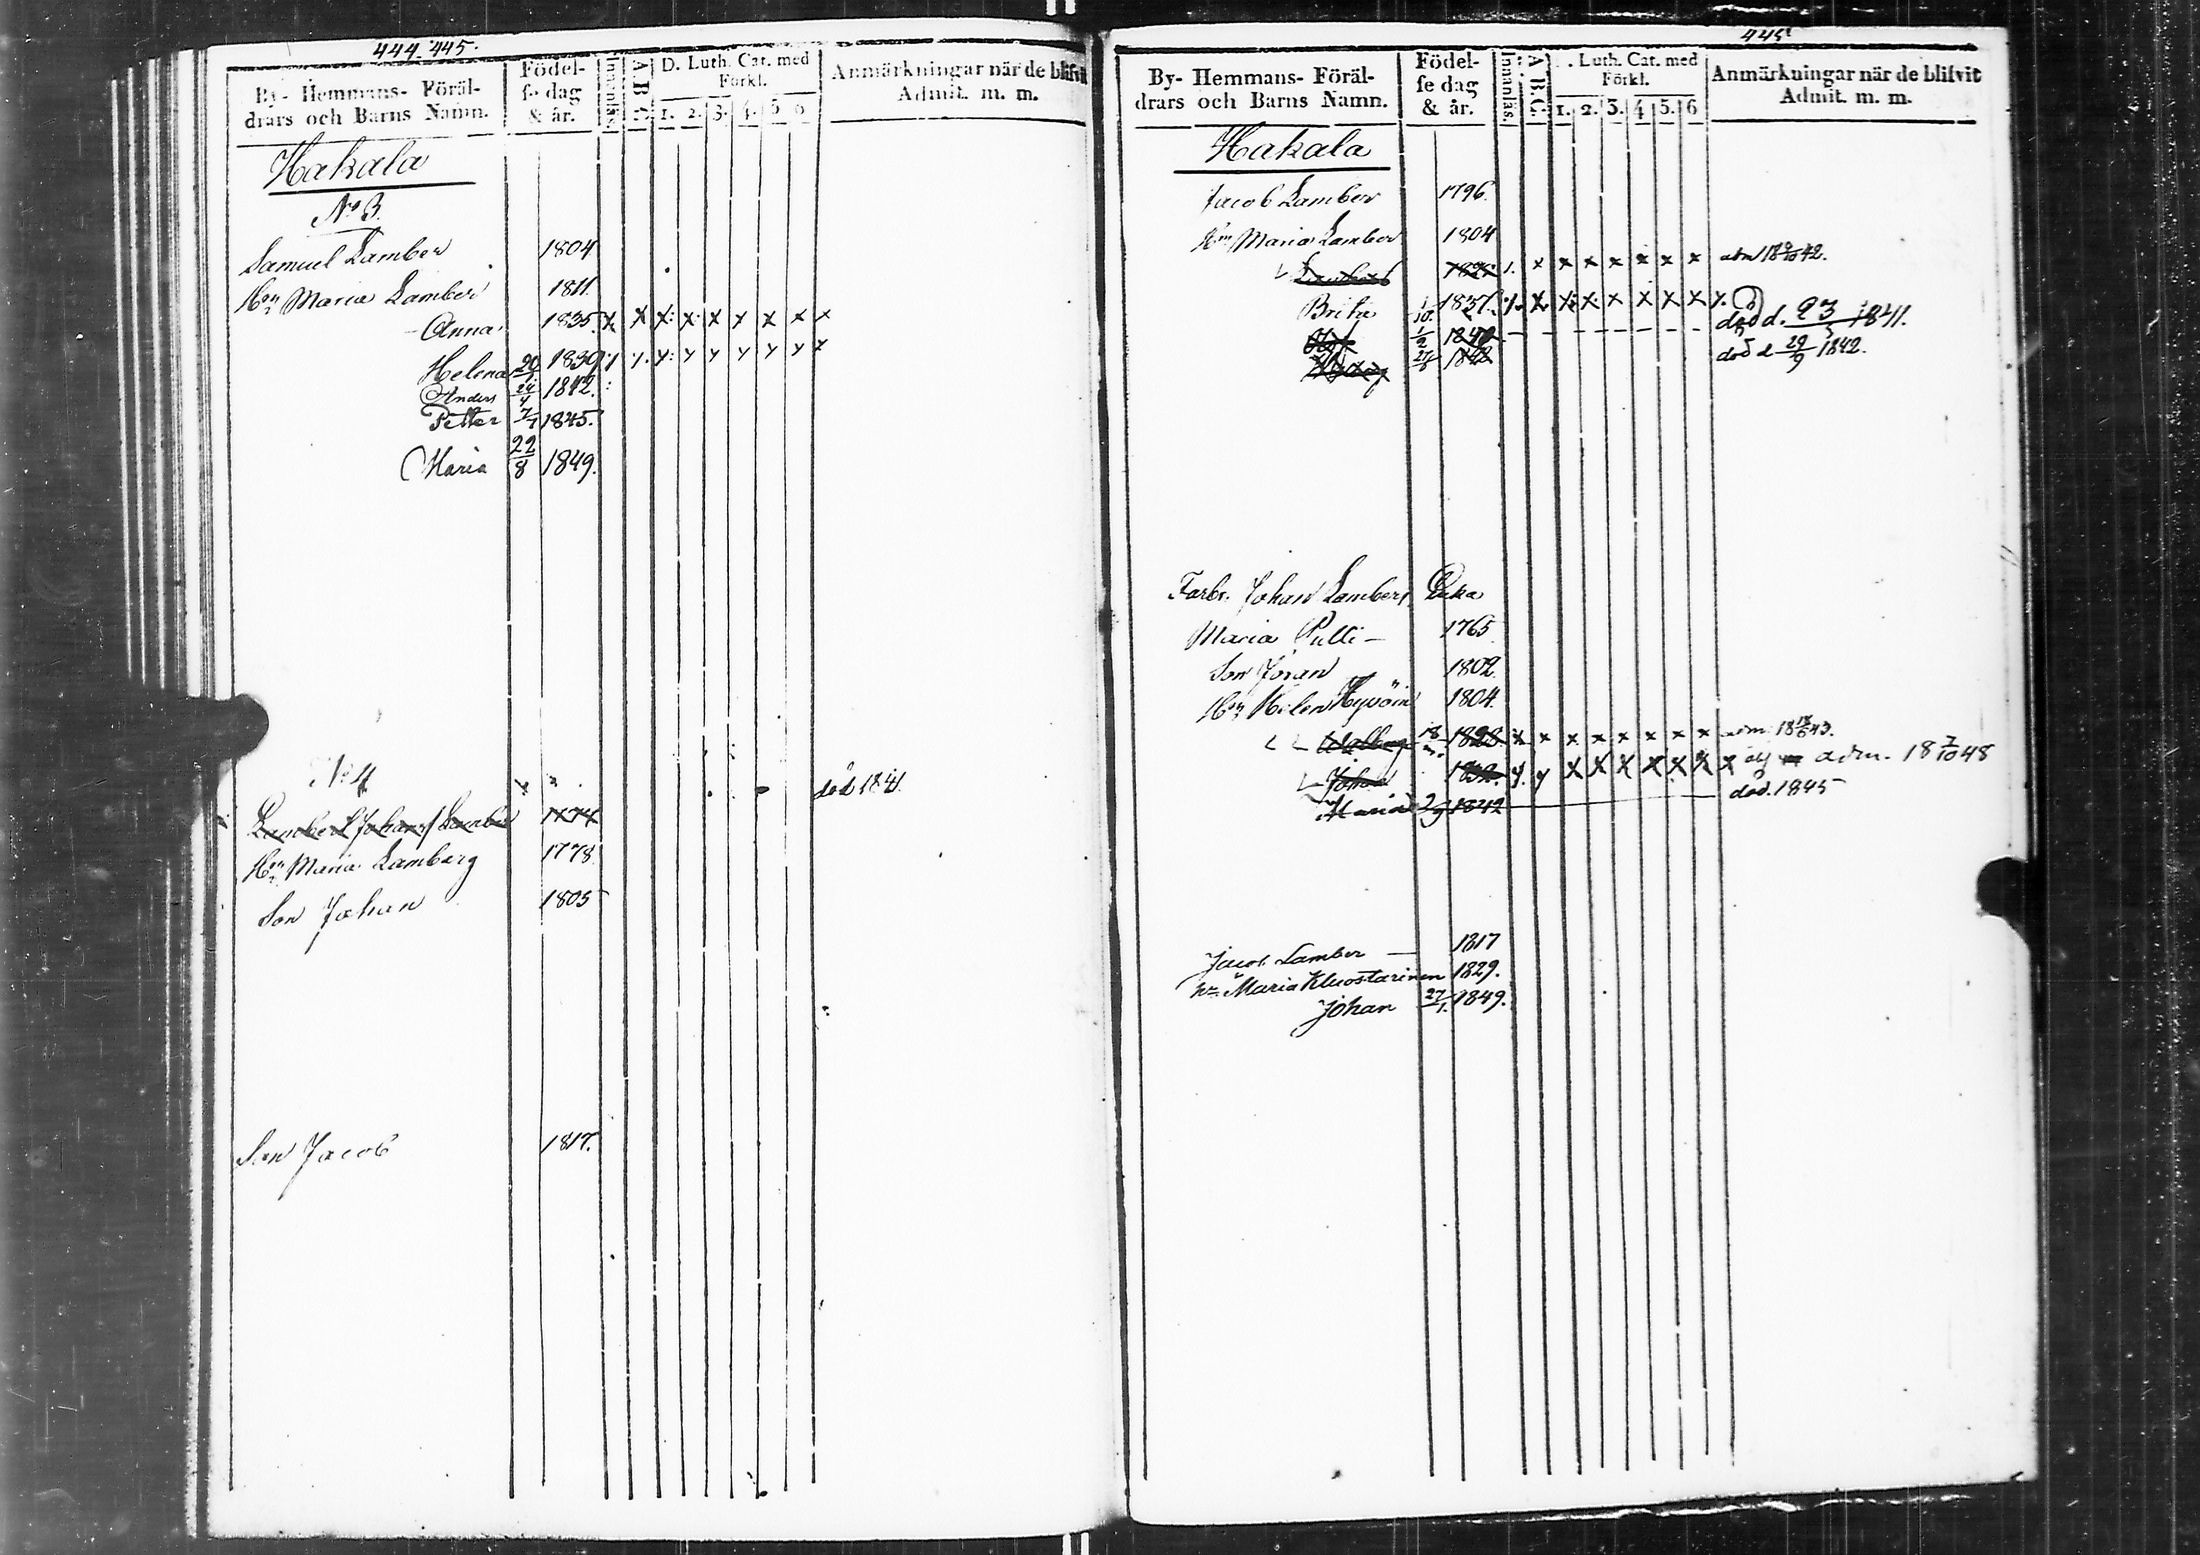 444. 445.
By- Hemmans- Föräl-
drars och Barns Namn.
Födel-
se dag
& år.
Innanläs.
A B C.
D. Luth. Cat. med
Förkl.
1. 2. 3. 4. 5 6
Anmärkningar när de blifvit
Admit. m. m.
Hakala
No 3.
Samuel Lamber 1804
Hu Maria Lamber 1811
Anna 1835. x x x x x x x x x
Helena 1839
Anders 1842.
Petter 7/7 1845.
Maria 22/8 1849.
No 4
död 1841.
Lambert Johans Lamber 1774
Hu Maria Lamberg 1778
Son Johan 1805
Son Jacob 1817.
445
By- Hemmans- Föräl-
drars och Barns Namn.
Födel-
se dag
& år.
Innanläs.
A.B.C.
D. Luth. Cat. med
Förkl.
1. 2. 3. 4 5. 6
Anmärkningar när de blifvit
Admit. m. m.
Hakala
Jacob Lamber 1796.
Hu Maria Lamber 1804
x x x x x x x
Brita 1837.
död d. 23 1841.
1842 död d 29/9 1842.
Farbr. Johan Lambers Enka
Maria Pulli 1765
Son Johan 1802.
Hu Helen Hyvöin 1804.
Walborg 18 1828 x x x x x x x x
Johan 1832. y. y x x x x x x adm. 18 7/10 48
Maria 2/9 1842 död. 1845
Jacob Lamber 1817
hu Maria Kluostarinen 1829.
Johan 27/1. 1849.